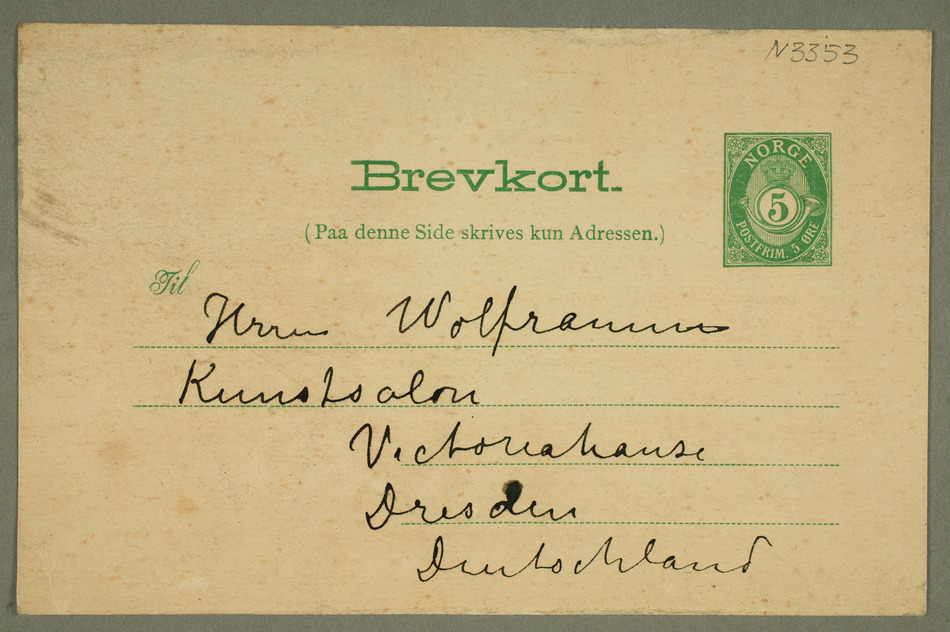 N3353
Brevkort.
(Paa denne Side skrives kun Adressen.)
NORGE
5
POSTFRIM. 5 ØRE
Til
Herrn Wolframm
Kunstsalon
Victoriahause
Dresden
Deutschland